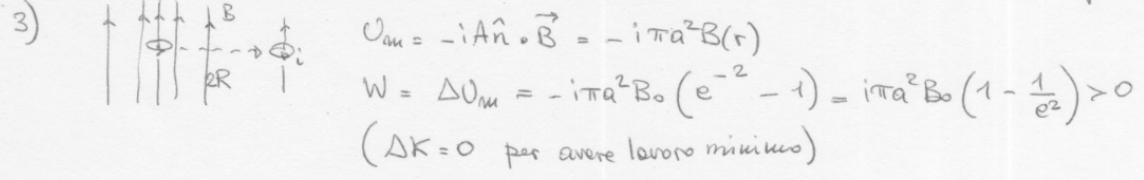 3) B i 2R
U_m = -iAn̂ · B⃗ = -iπa²B(r)
W = ΔU_m = -iπa²B₀(e⁻² - 1) = iπa²B₀(1 - 1/e²) > 0
(ΔK = 0 per avere lavoro minimo)